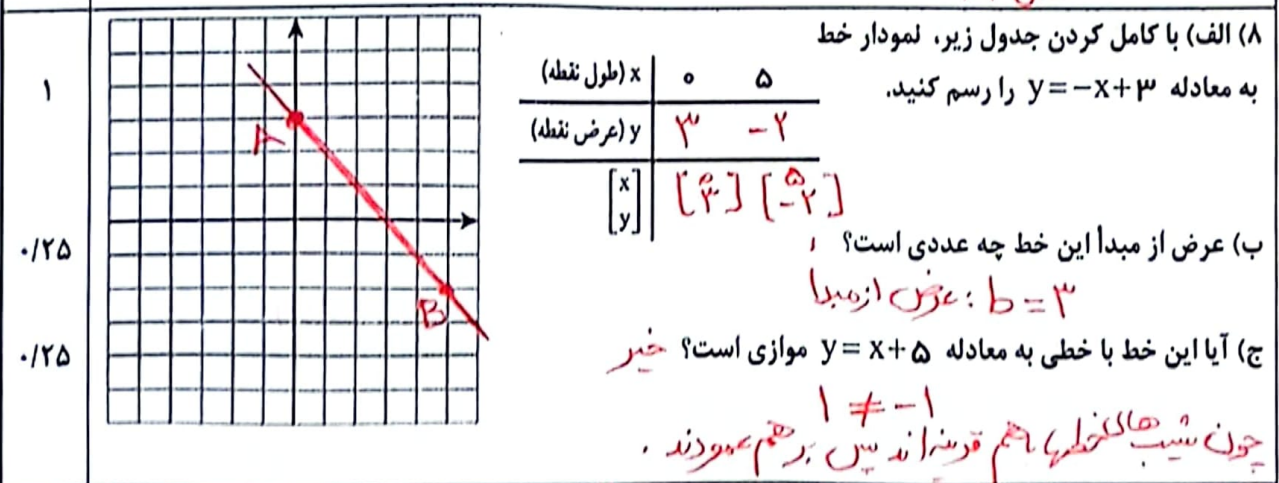 ۸) الف) با کامل کردن جدول زیر، نمودار خط
به معادله y=−x+۳ را رسم کنید.
x (طول نقطه) ۰ ۵
y (عرض نقطه) ۳ −۲
[x y] [۰ ۳] [۵ −۲]
۱
A
B
ب) عرض از مبدأ این خط چه عددی است؟
۰/۲۵
b=۳ : عرض از مبدا
ج) آیا این خط با خطی به معادله y=x+۵ موازی است؟ خیر
۰/۲۵
۱ ≠ −۱
چون شیب های خطها با هم قرینه اند پس بر هم عمودند .